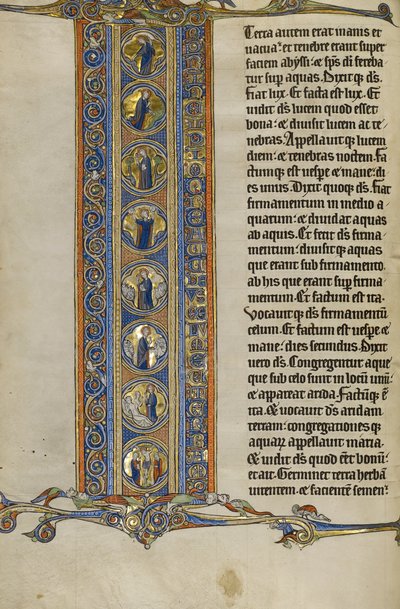 IN PRINCIPIO CREAUIT DEUS CELUM ET TERRAM
Terra autem erat inanis et
uacua: et tenebre erant super
faciem abyssi: et sp̄s dī fereba
tur sup aquas. Dixit q̄ ds̄.
Fiat lux. Et facta est lux. Et
uidit ds̄ lucem quod esset
bona: et diuisit lucem ac te
nebras. Appellauit q̄ lucem
diem: et tenebras noctem. Fa
ctumq̄ est uespe et mane: di
es unus. Dixit quoq̄ ds̄. Fiat
firmamentum in medio a
quarum: et diuidat aquas
ab aquis. Et fecit ds̄ firma
mentum: diuisit q̄ aquas
que erant sub firmamento.
ab his que erant sup̄ firma
mentum. Et factum est ita.
Vocauit q̄ ds̄ firmamentū
celum. Et factum est uespe et
mane: dies secundus. Dixit
uero ds̄. Congregentur aque
que sub celo sunt in locū unū:
et appareat arida. Factūq̄ ē
ita. et uocauit ds̄ aridam
terram: congregationes q̄
aquaꝝ appellauit maria.
Et uidit ds̄ quod eēt bonū:
et ait. Germinet terra herbā
uirentem. et facientē semen: